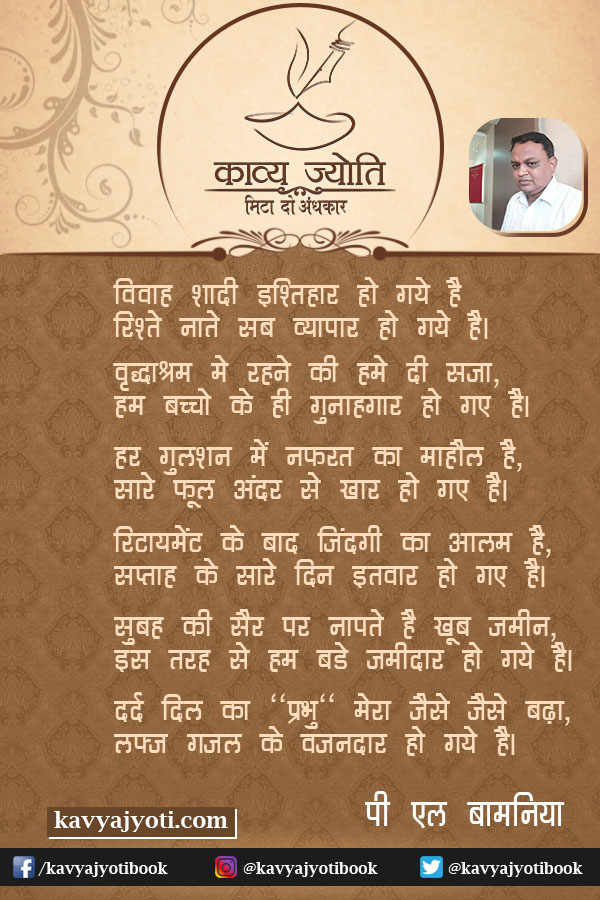 काव्य ज्योति
मिटा दो अंधकार
विवाह शादी इश्तिहार हो गये है
रिश्ते नाते सब व्यापार हो गये है।
वृद्धाश्रम मे रहने की हमे दी सजा,
हम बच्चो के ही गुनाहगार हो गए है।
हर गुलशन में नफरत का माहौल है,
सारे फूल अंदर से खार हो गए है।
रिटायमेंट के बाद जिंदगी का आलम है,
सप्ताह के सारे दिन इतवार हो गए है।
सुबह की सैर पर नापते है खूब जमीन,
इस तरह से हम बडे जमीदार हो गये है।
दर्द दिल का ‘‘प्रभु‘‘ मेरा जैसे जैसे बढ़ा,
लफ्ज गजल के वजनदार हो गये है।
पी एल बामनिया
kavyajyoti.com
/kavyajyotibook @kavyajyotibook @kavyajyotibook